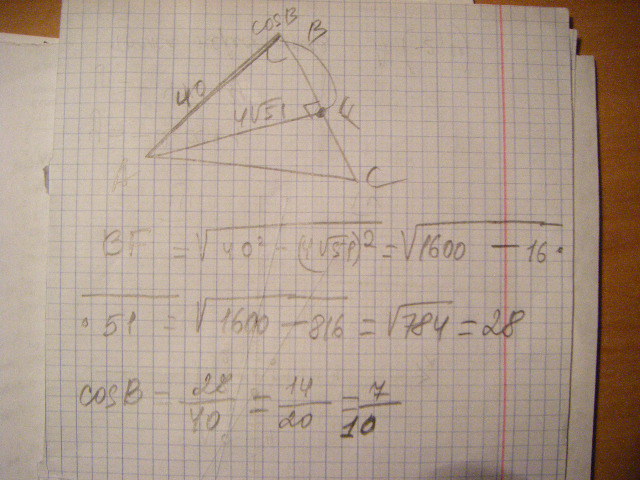 cosB
B
40
4√51
C
BF = √40² - (4√51)² = √1600 - 16 ·
· 51 = √1600 - 816 = √784 = 28
cosB = 28/40 = 14/20 = 7/10